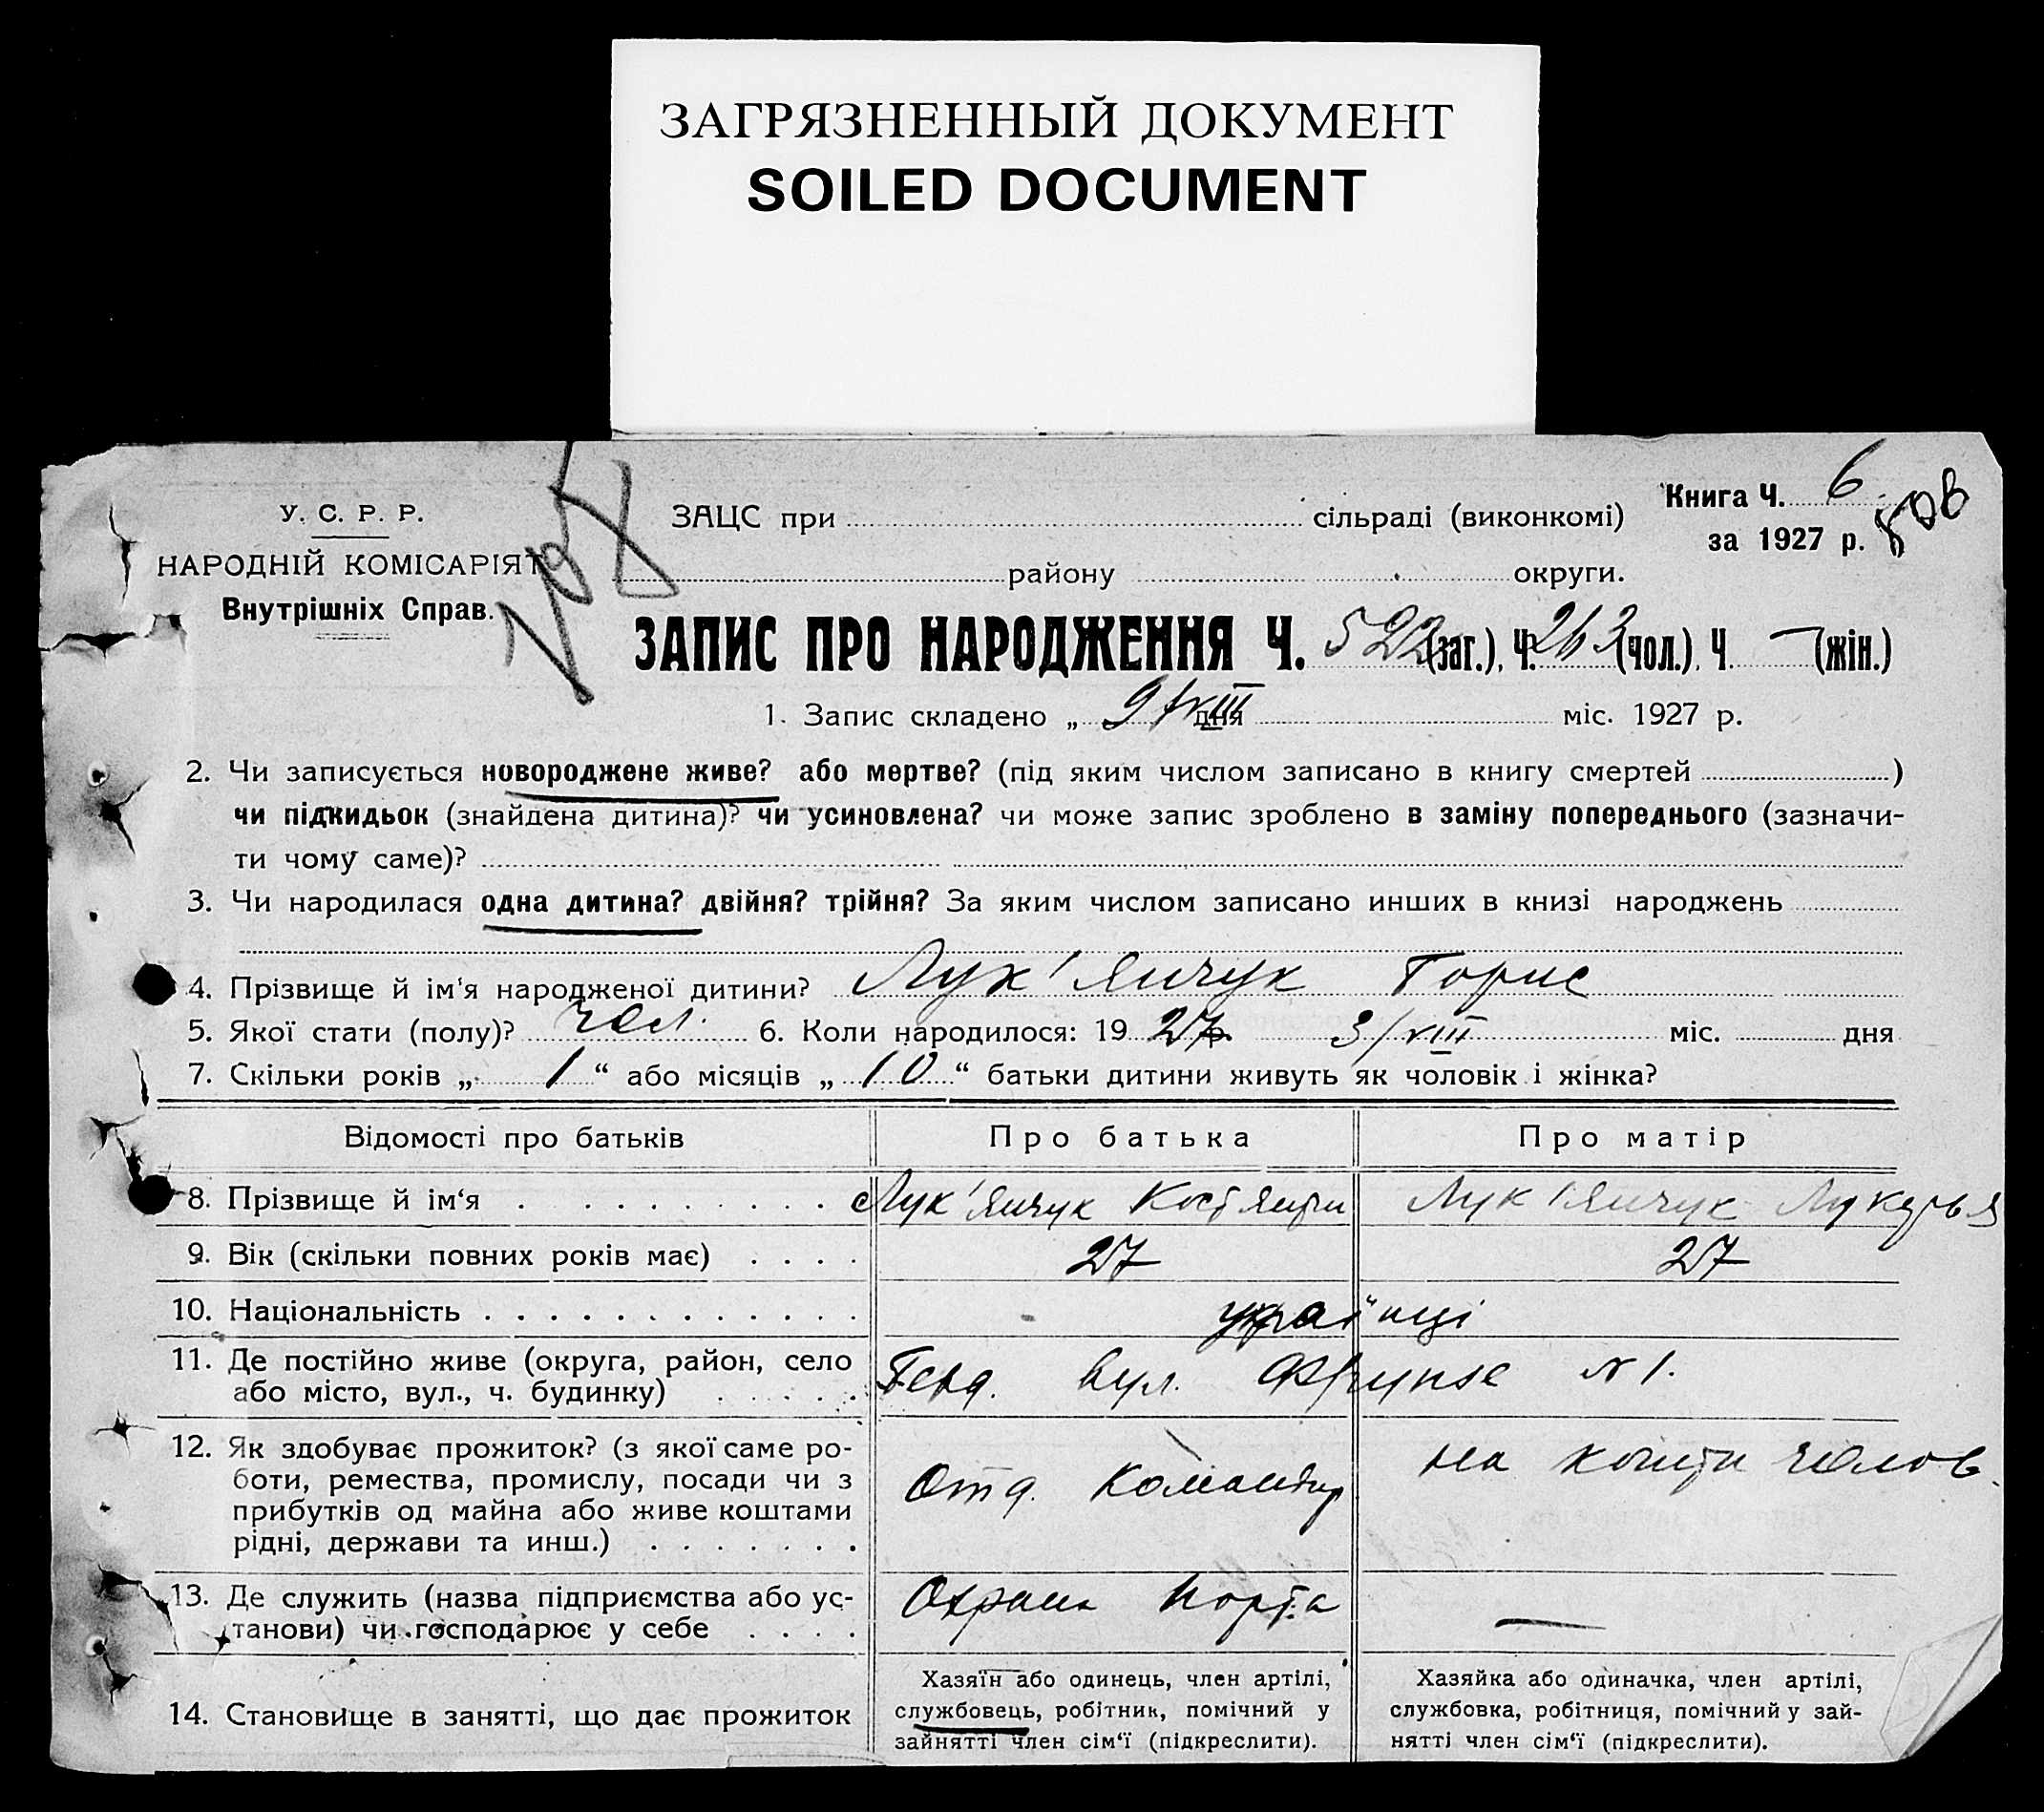 ЗАГРЯЗНЕННЫЙ ДОКУМЕНТ
SOILED DOCUMENT
У. С. Р. Р.
НАРОДНІЙ КОМІСАРІЯТ
Внутрішніх Справ.
ЗАЦС при сільраді (виконкомі)
району округи.
Книга Ч. 6
за 1927 р.
ЗАПИС ПРО НАРОДЖЕННЯ Ч. 522 (заг.), Ч. 263 (чол.), Ч. — (жін.)
1. Запис складено „ 9/VIII дня міс. 1927 р.
2. Чи записується новороджене живе? або мертве? (під яким числом записано в книгу смертей )
чи підкидьок (знайдена дитина)? чи усиновлена? чи може запис зроблено в заміну попереднього (зазначи-
ти чому саме)?
3. Чи народилася одна дитина? двійня? трійня? За яким числом записано инших в книзі народжень
4. Прізвище й ім'я народженої дитини? Лук'янчук Борис
5. Якої стати (полу)? чол. 6. Коли народилося: 1927 р. 3/VIII міс. дня
7. Скільки років „ 1 “ або місяців „ 10 “ батьки дитини живуть як чоловік і жінка?
Відомості про батьків Про батька Про матір
8. Прізвище й ім'я Лук'янчук Костянтин Лук'янчук Лукерья
9. Вік (скільки повних років має) 27 27
10. Національність українці
11. Де постійно живе (округа, район, село
або місто, вул., ч. будинку) вул. Фрунзе № 1.
12. Як здобуває прожиток? (з якої саме ро-
боти, ремества, промислу, посади чи з
прибутків од майна або живе коштами
рідні, держави та инш.) Отд. командир на кошти чолов.
13. Де служить (назва підприємства або ус-
танови) чи господарює у себе Охрана порта —
14. Становище в занятті, що дає прожиток
Хазяїн або одинець, член артілі,
службовець, робітник, помічний у
зайнятті член сім'ї (підкреслити).
Хазяйка або одиначка, член артілі,
службовка, робітниця, помічний у зай-
нятті член сім'ї (підкреслити).